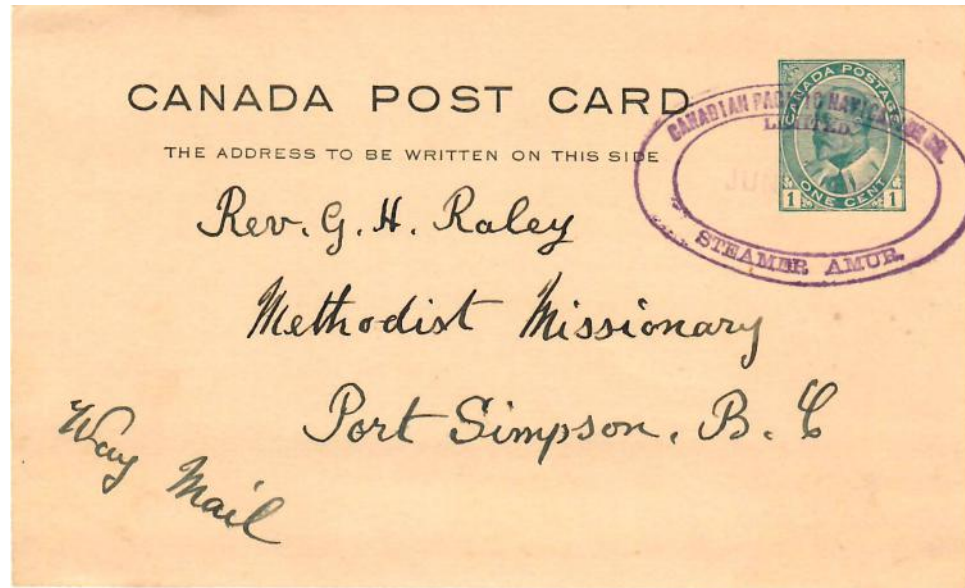 CANADA POST CARD
THE ADDRESS TO BE WRITTEN ON THIS SIDE
CANADA POSTAGE
1 ONE CENT 1
CANADIAN PACIFIC NAVIGATION CO.
LIMITED.
JUN
STEAMER AMUR.
Rev. G. H. Raley
Methodist Missionary
Port Simpson, B. C
Way Mail